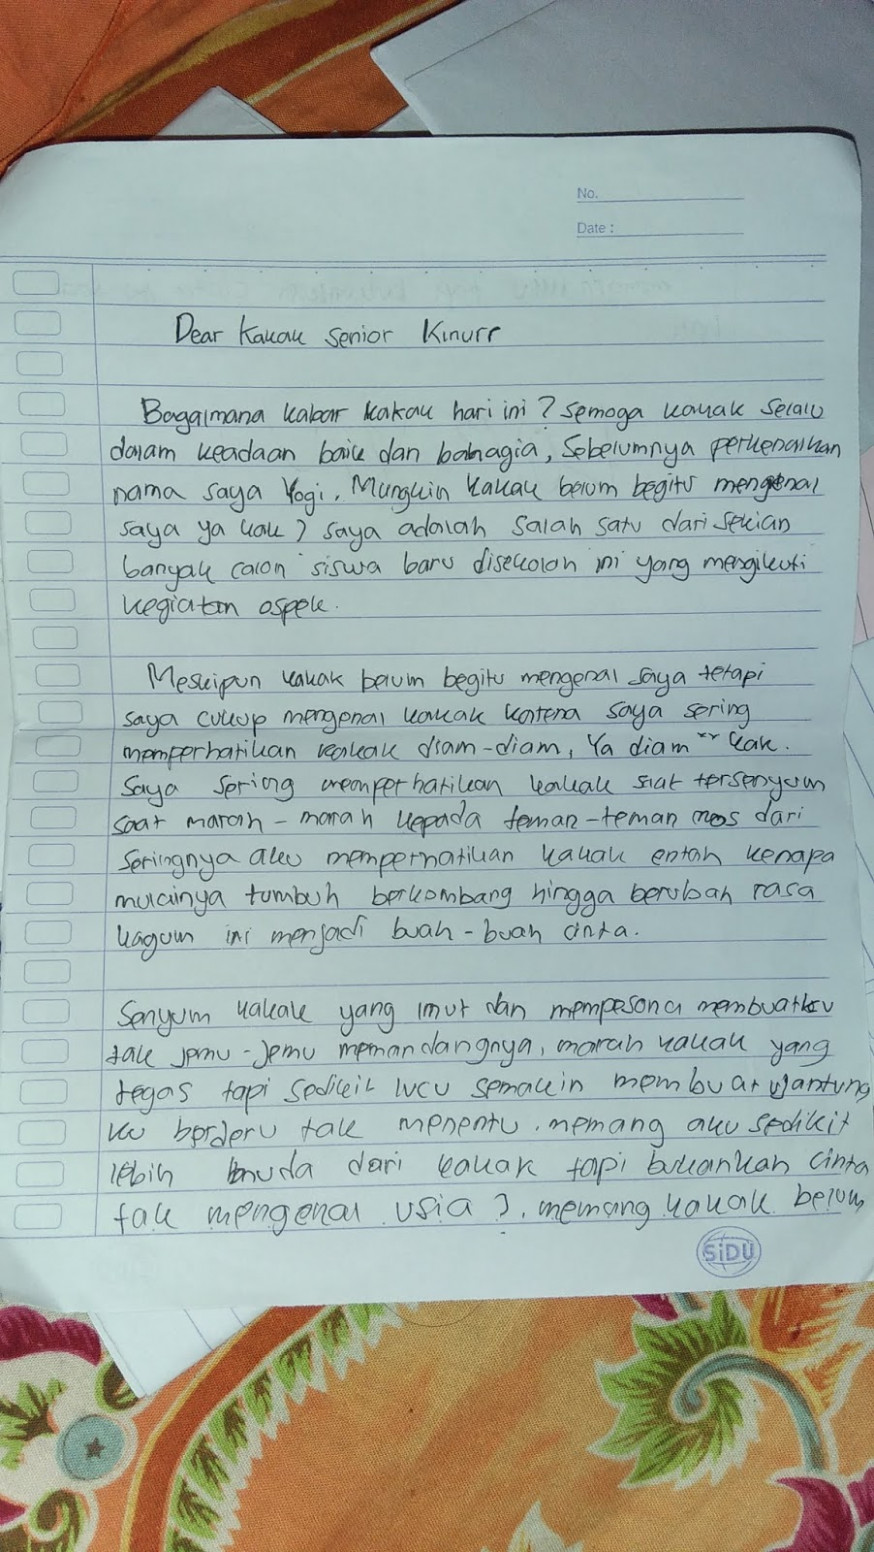 No.
Date :
Dear Kakak senior Kinurr
Bagaimana kabar kakak hari ini ? semoga kakak selalu
dalam keadaan baik dan bahagia, Sebelumnya perkenalkan
nama saya Yogi, Mungkin kakak belum begitu mengenal
saya ya kak ? saya adalah salah satu dari sekian
banyak calon siswa baru disekolah ini yang mengikuti
kegiatan ospek.
Meskipun kakak belum begitu mengenal saya tetapi
saya cukup mengenal kakak karena saya sering
memperhatikan kakak diam-diam, Ya diam" kak.
Saya sering memperhatikan kakak saat tersenyum
saat marah - marah kepada teman-teman mos dari
seringnya aku memperhatikan kakak entah kenapa
mulainya tumbuh berkembang hingga berubah rasa
kagum ini menjadi buah - buah cinta.
Senyum kakak yang imut dan mempesona membuatku
tak jemu - jemu memandangnya, marah kakak yang
tegas tapi sedikit lucu semakin membuat jantung
ku berderu tak menentu. memang aku sedikit
lebih muda dari kakak tapi bukankah cinta
tak mengenal usia ?. memang kakak belum
SiDU